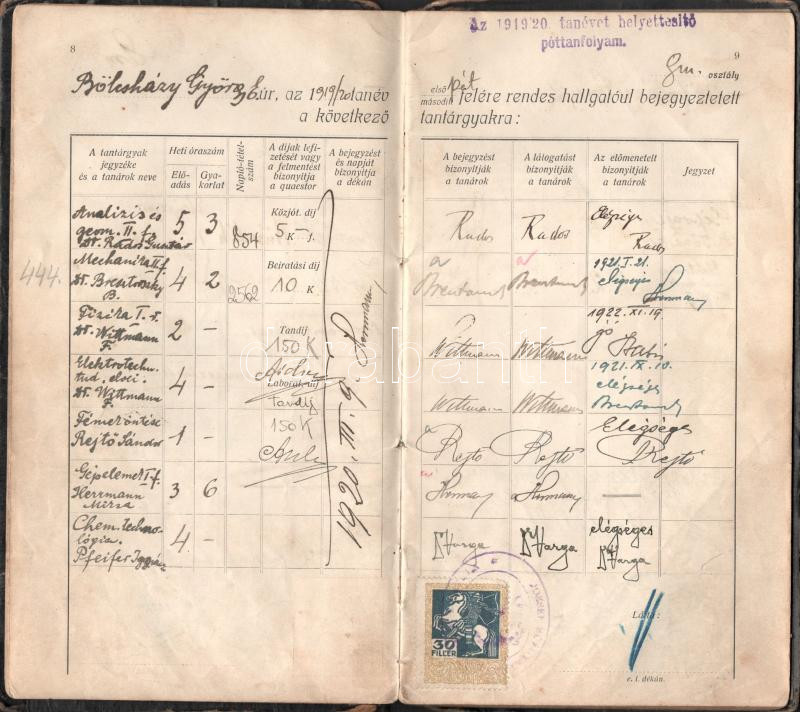 8
Bölcsházy György úr, az 1919/20 tanév
a következő
A tantárgyak
jegyzéke
és a tanárok neve
Heti óraszám
Elő-
adás
Gya-
korlat
Napló-tétel-
szám
A díjak lefi-
zetését vagy
a felmentést
bizonyítja
a quaestor
A bejegyzést
és napját
bizonyítja
a dékán
Analizis és
geom. II. f.
Dr. Rados Gusztáv
5 3
854
Közjót. díj
5 K — f.
Mechanika II. f.
Dr. Brentovszky
B.
4 2
444.
2562
Beiratási díj
10 K
Fizika I. f.
Dr. Wittmann
F.
2 –
Tandíj
150 K
Elektrotechn.
tud. elvei.
Dr. Wittmann
F.
4 –
Laborat. díj
tandíj
150 K
Fémöntés
Rejtő Sándor
1 –
Gépelemek I. f.
Herrmann
Miksa
3 6
Chem. techno-
lógia.
Pfeifer Ignác
4 –
1920. III. 19. Herrmann
Az 1919/20. tanévet helyettesitő
póttanfolyam.
9
Gm. osztály
első pót
második felére rendes hallgatóul bejegyeztetett
tantárgyakra:
A bejegyzést
bizonyítják
a tanárok
A látogatást
bizonyítják
a tanárok
Az előmenetelt
bizonyítják
a tanárok
Jegyzet
Rados Rados elégséges
Rados
1921. I. 21.
elégséges
Herrmann
1922. XI. 19.
Wittmann Wittmann jó
1921. IX. 10.
elégséges
Wittmann Wittmann
Elégséges
Rejtő Rejtő Rejtő
Herrmann Herrmann —
elégséges
Varga Varga Varga
30
FILLÉR
JÓZSEF
Látta:
e. i. dékán.
darabanth